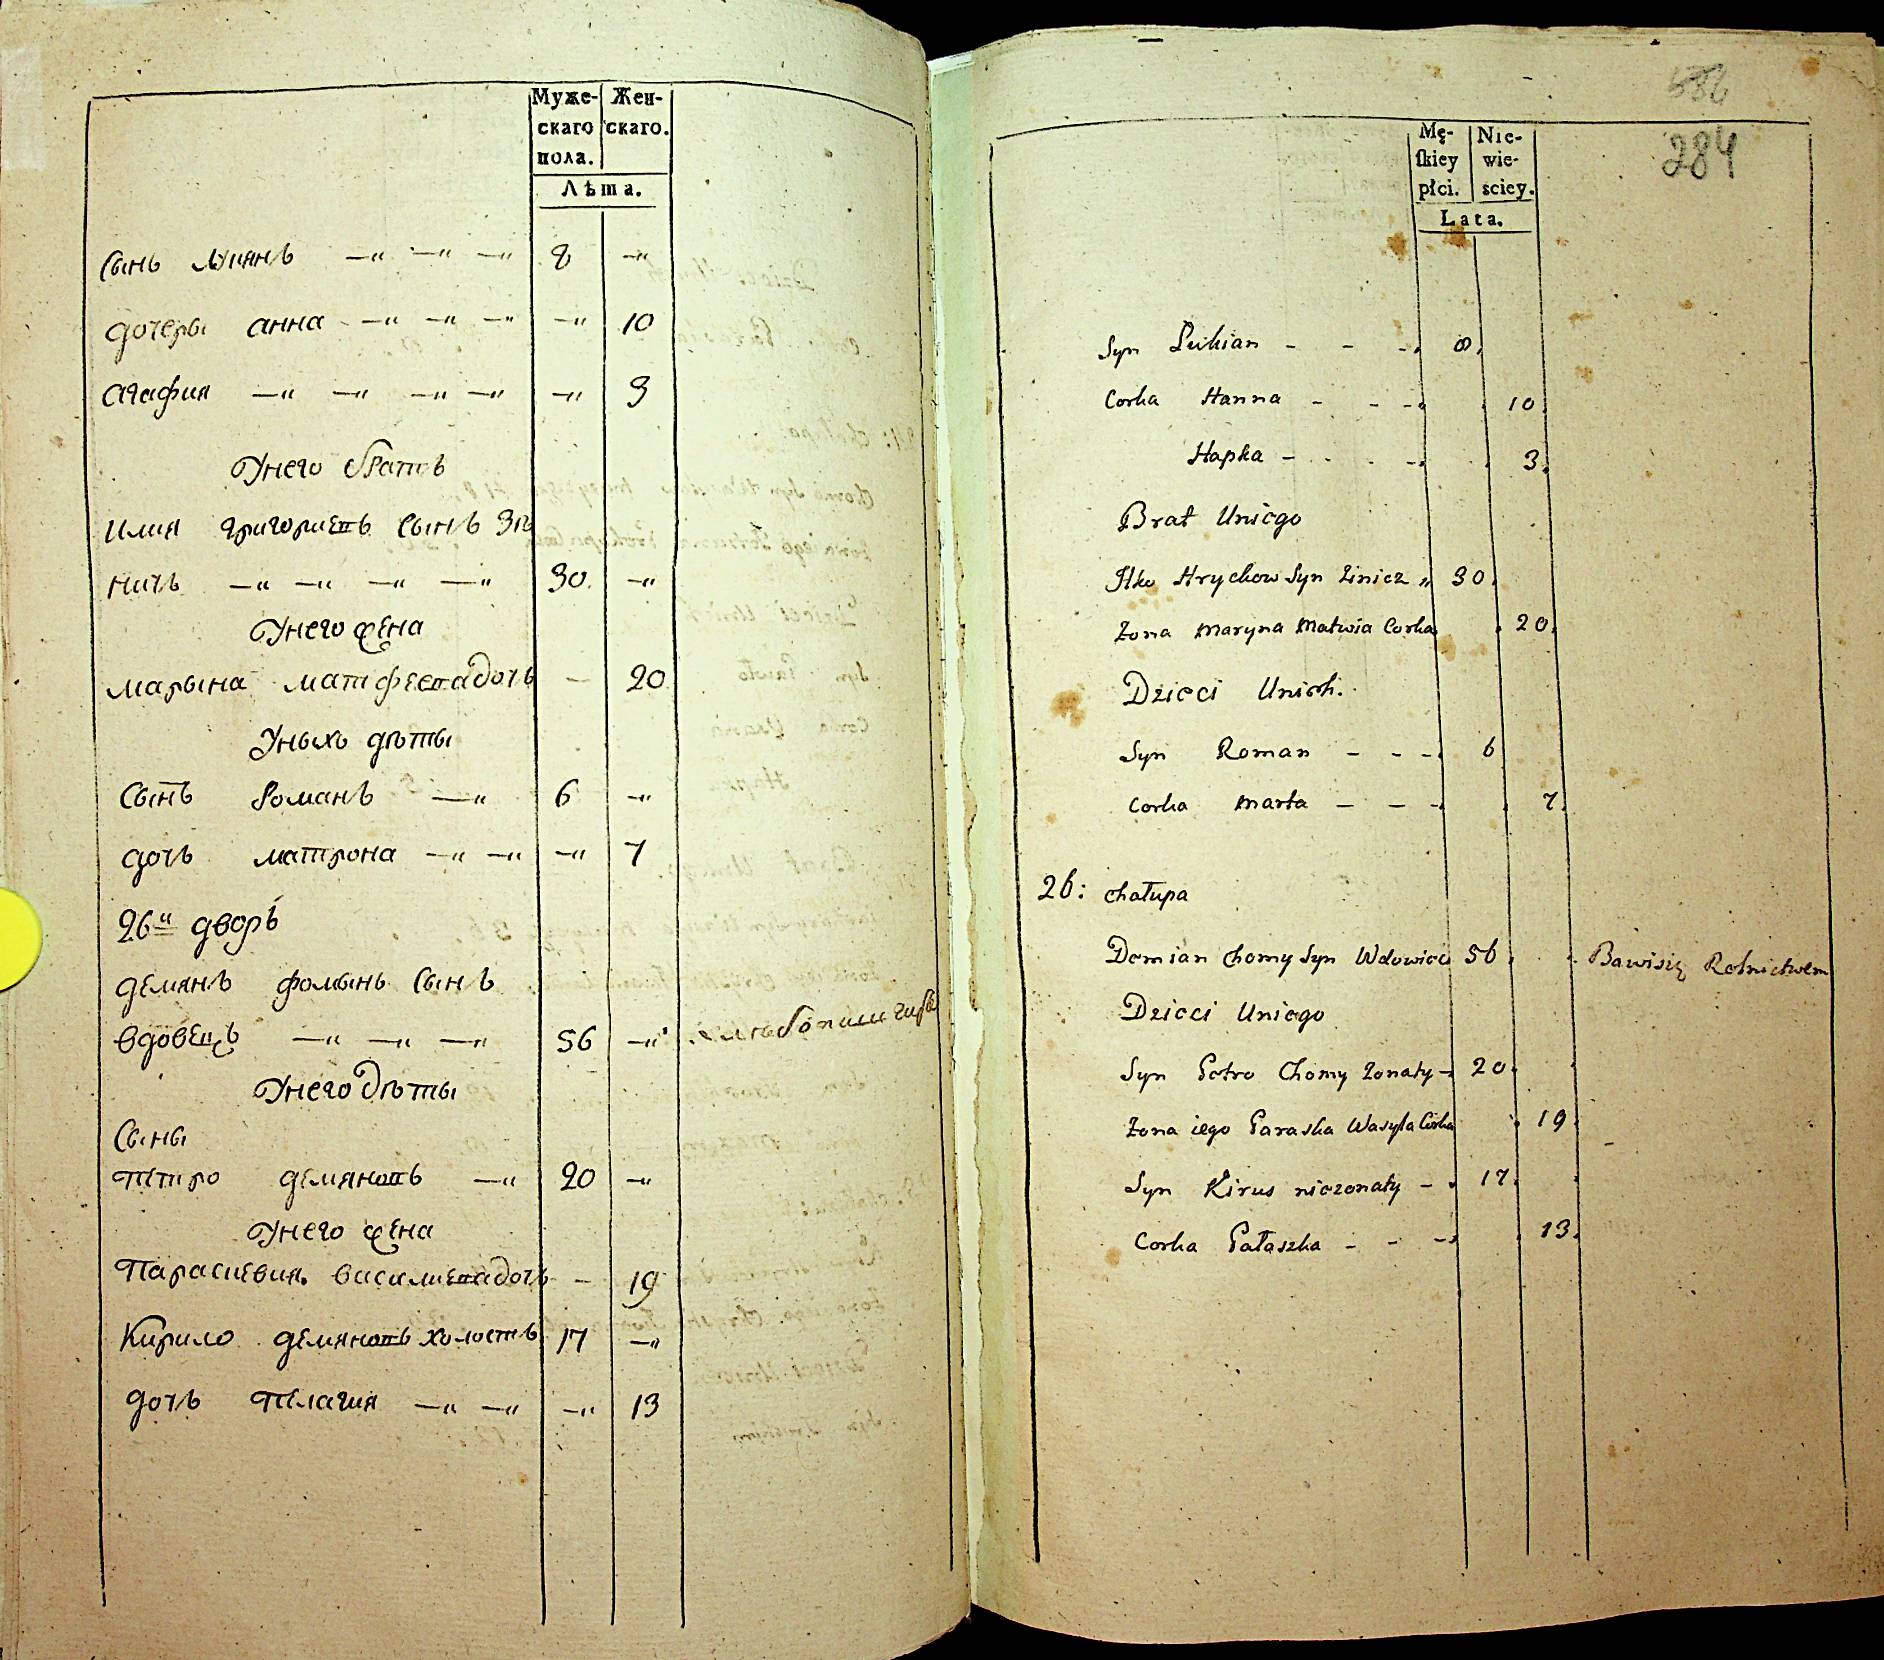 Муже-
скаго
пола.
Жен-
скаго.
Лѣта.
Сынъ Лукянъ —„ —„ —„ 8 —„
дочеры анна —„ —„ —„ —„ 10
агафия —„ —„ —„ —„ —„ 3
Унего братъ
Илия григориевъ сынъ Зѣ
ничъ —„ —„ —„ —„ 30. —„
Унего жена
марына матфеевадочь — 20
Уныхъ дѣты
Сынъ Романъ —„ 6 —„
дочь матрона —„ —„ —„ 7
26й дворъ
демянъ фомынъ сынъ
вдовецъ —„ —„ —„ 56 —„
Унего дѣты
Сыны
петро демяновъ —„ 20 —„
Унего жена
Парасиевия василиевадочь — 19
Кирило демяновъ холостъ 17 —„
дочь пелагия —„ —„ —„ 13
586
284
Mę-
skiey
płci.
Nie-
wie-
sciey.
Lata.
Syn Lukian - - - 8.
Corka Hanna - - - 10.
Hapka - - - - 3.
Brat Uniego
Ilko Hrychow Syn Zinicz „ 30.
Zona Maryna Matwia Corka 20.
Dzieci Unich.
Syn Roman - - - 6
Corka Marta - - - 7.
26: Chałupa
Demian Chomy Syn Wdowiec 56. Bawisię Rolnictwem
Dzieci Uniego
Syn Petro Chomy Zonaty - 20.
Zona iego Paraska Wasyla Corka 19.
Syn Kirus niezonaty - 17.
Corka Pałaszka - - - 13.